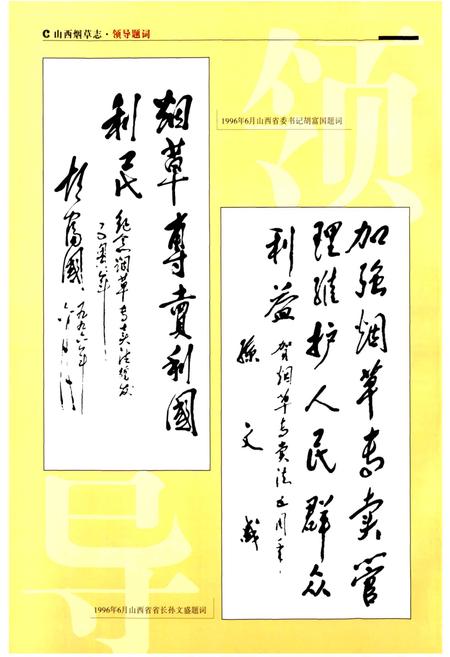 C 山西烟草志·领导题词
领
1996年6月山西省委书记胡富国题词
烟草專賣利國
利民
纪念烟草专卖法颁发
五周年
胡富國
一九九六年
六月
加強烟草专卖管
理维护人民群众
利益
贺烟草专卖法五周年
孫文盛
导
1996年6月山西省省长孙文盛题词